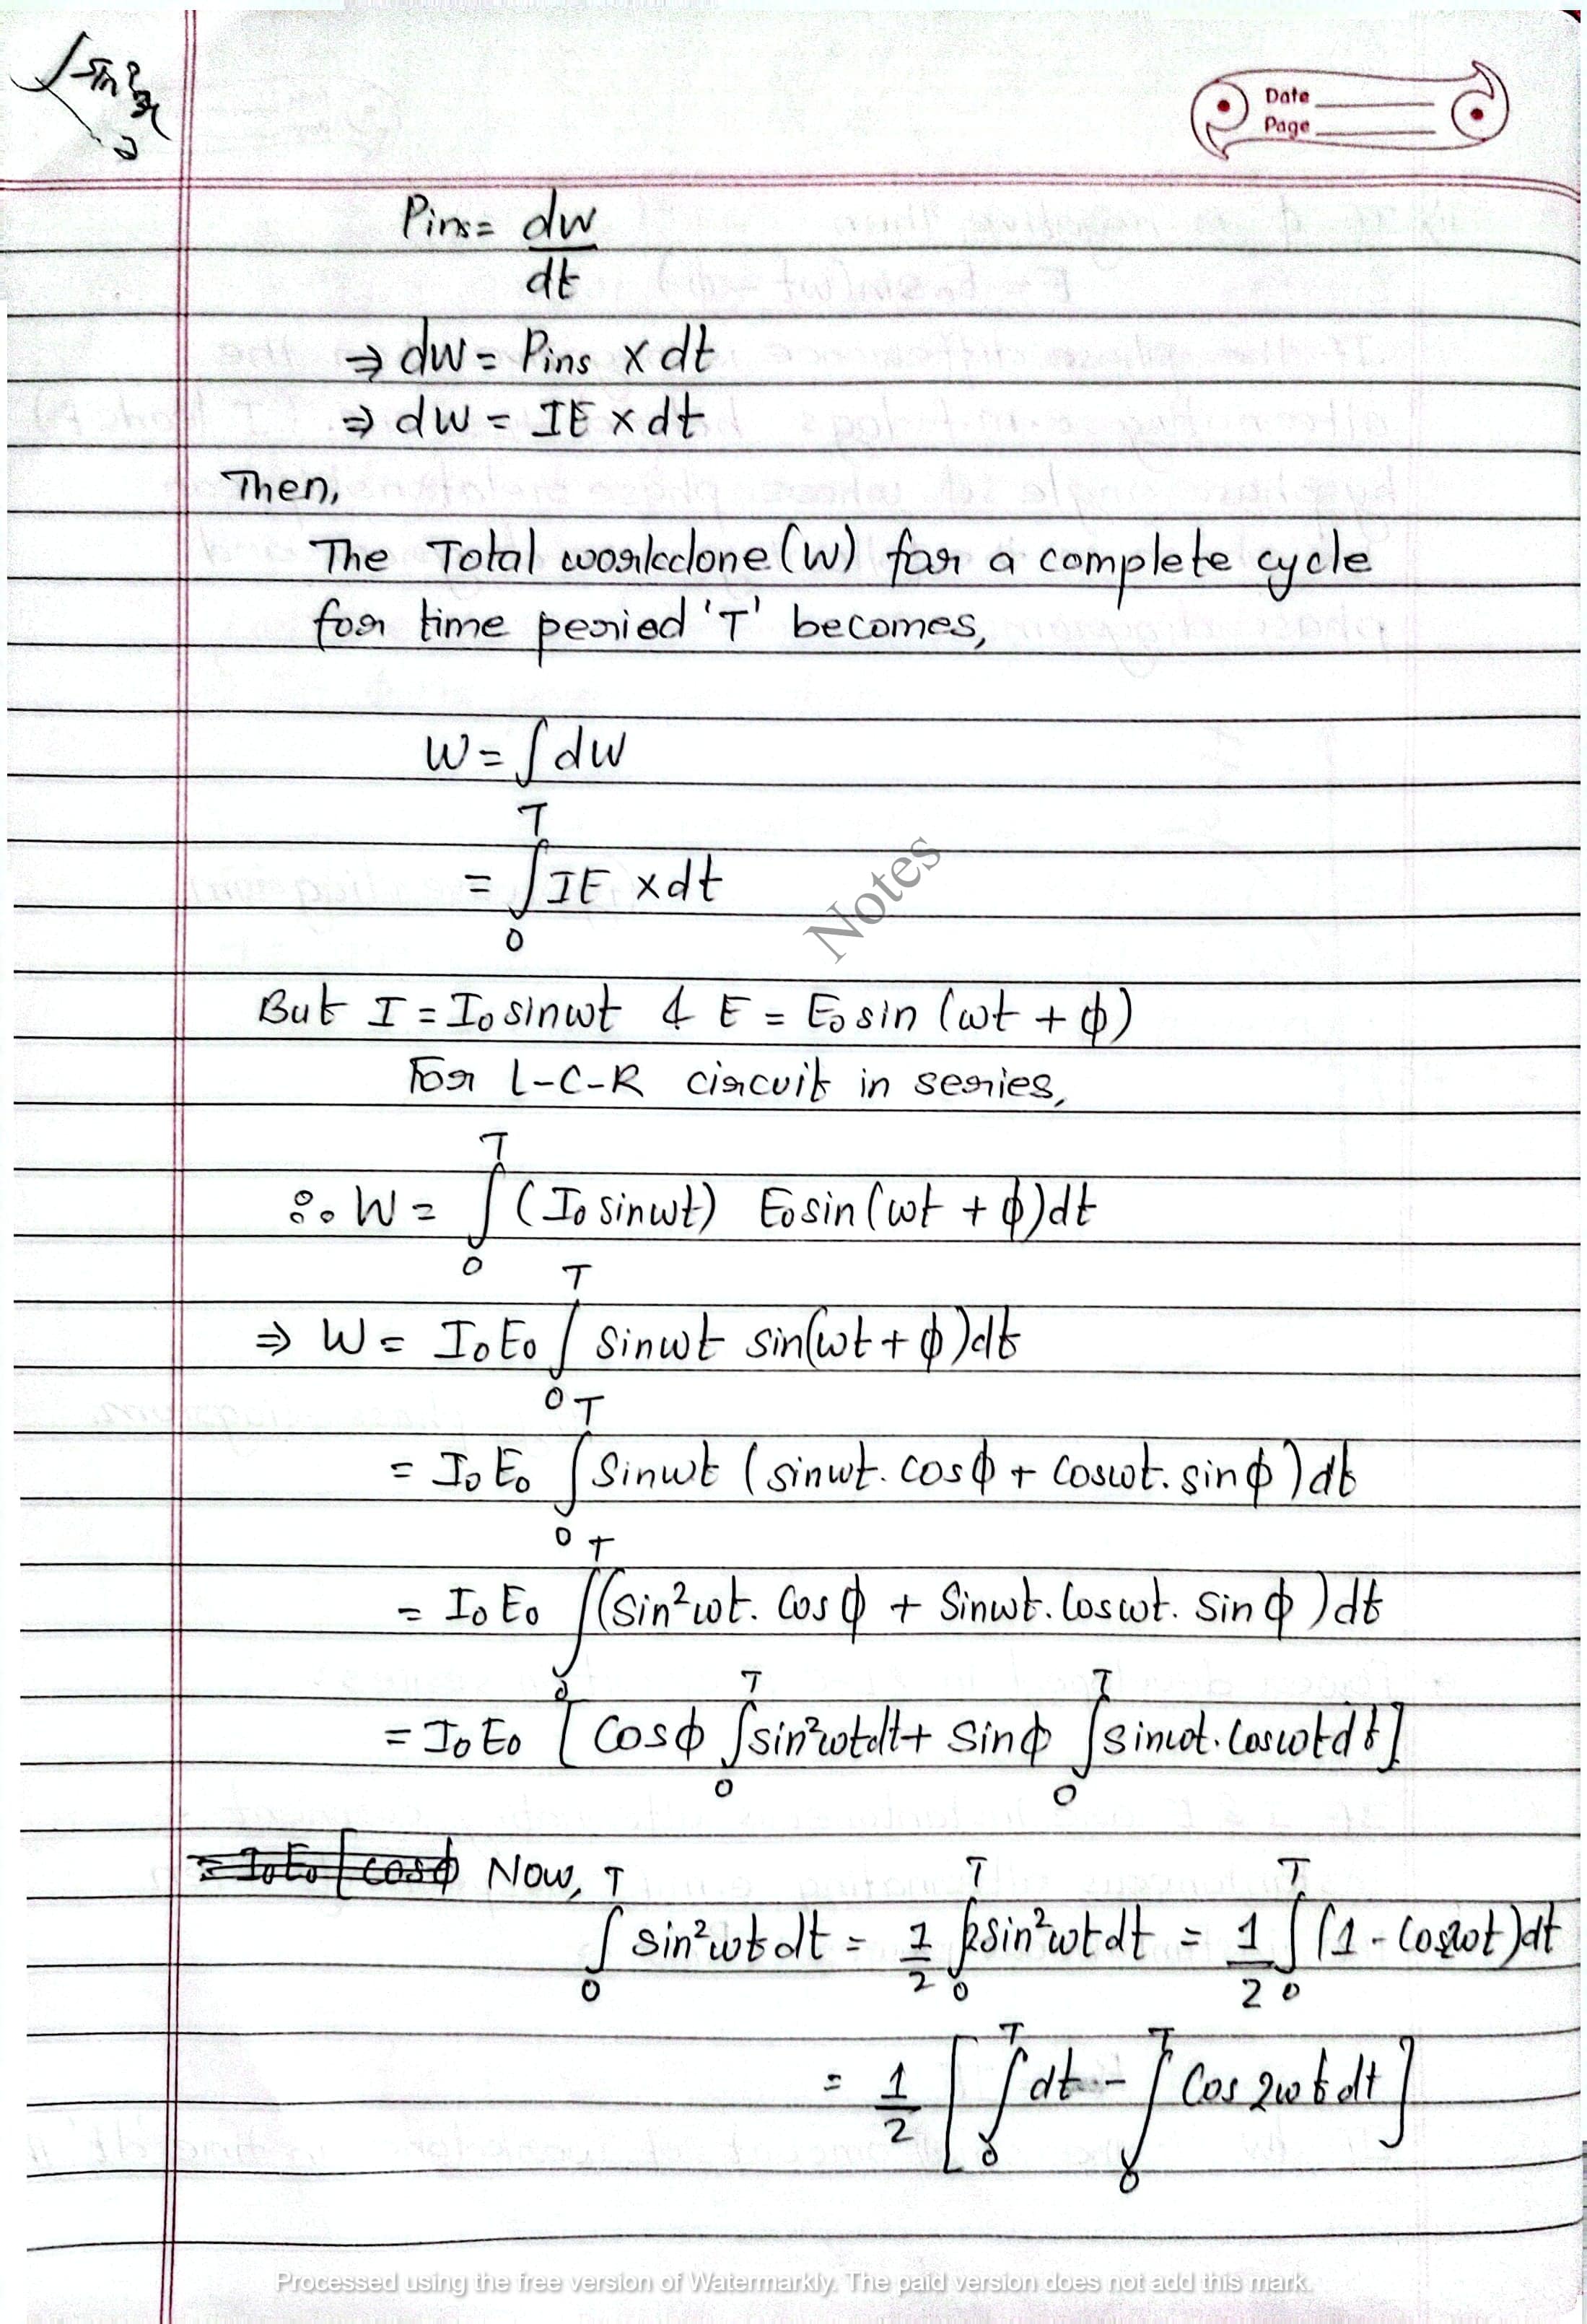 Date
Page
Pins = dw/dt
⇒ dw = Pins × dt
⇒ dw = IE × dt
Then,
The Total workdone (W) for a complete cycle
for time period 'T' becomes,
W = ∫ dw
= ∫₀ᵀ IE × dt
Notes
But I = I₀ sinωt & E = E₀ sin (ωt + ϕ)
For L-C-R circuit in series,
∴ W = ∫₀ᵀ (I₀ sinωt) E₀ sin (ωt + ϕ) dt
⇒ W = I₀ E₀ ∫₀ᵀ sinωt sin(ωt + ϕ) dt
= I₀ E₀ ∫₀ᵀ Sinωt (sinωt. cosϕ + cosωt. sinϕ) dt
= I₀ E₀ ∫₀ᵀ (sin²ωt. Cosϕ + Sinωt. Cosωt. Sinϕ) dt
= I₀ E₀ [Cosϕ ∫₀ᵀ sin²ωt dt + Sinϕ ∫₀ᵀ sinωt. Cosωt dt]
= I₀ E₀ [cosϕ Now,
∫₀ᵀ sin²ωt dt = 1/2 ∫₀ᵀ 2sin²ωt dt = 1/2 ∫₀ᵀ (1 - Cos2ωt) dt
= 1/2 [∫₀ᵀ dt - ∫₀ᵀ Cos 2ωt dt]
Processed using the free version of Watermarkly. The paid version does not add this mark.